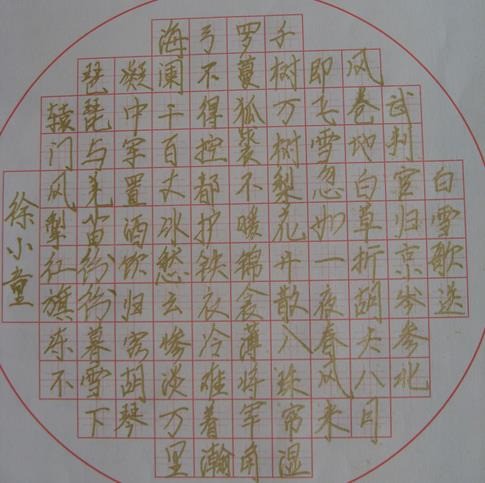 白雪歌送
武判官归京岑参北
风卷地白草折胡天八月
即飞雪忽如一夜春风来
千树万树梨花开散入珠帘湿
罗幕狐裘不暖锦衾薄将军角
弓不得控都护铁衣冷难着瀚
海阑干百丈冰愁云惨淡万里
凝中军置酒饮归客胡琴
琵琶与羌笛纷纷暮雪下
辕门风掣红旗冻不
徐小童